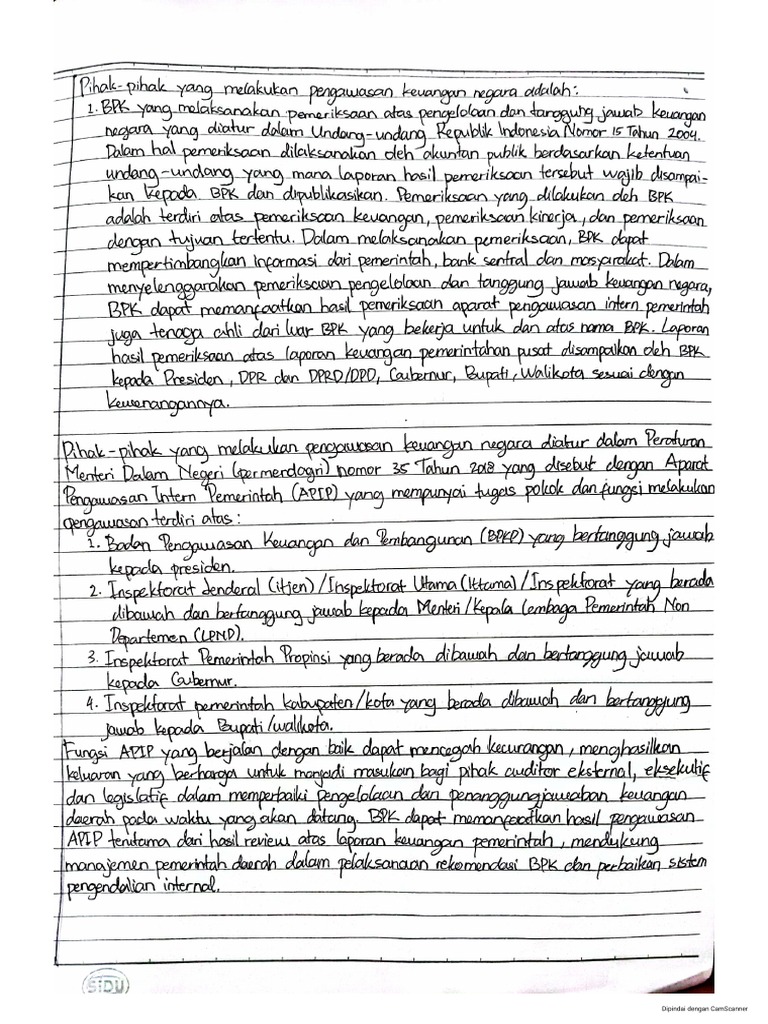 Pihak-pihak yang melakukan pengawasan keuangan negara adalah:
1. BPK yang melaksanakan pemeriksaan atas pengelolaan dan tanggung jawab keuangan
negara yang diatur dalam Undang-undang Republik Indonesia Nomor 15 Tahun 2004.
Dalam hal pemeriksaan dilaksanakan oleh akuntan publik berdasarkan ketentuan
undang-undang yang mana laporan hasil pemeriksaan tersebut wajib disampai-
kan kepada BPK dan dipublikasikan. Pemeriksaan yang dilakukan oleh BPK
adalah terdiri atas pemeriksaan keuangan, pemeriksaan kinerja, dan pemeriksaan
dengan tujuan tertentu. Dalam melaksanakan pemeriksaan, BPK dapat
mempertimbangkan informasi dari pemerintah, bank sentral dan masyarakat. Dalam
menyelenggarakan pemeriksaan pengelolaan dan tanggung jawab keuangan negara,
BPK dapat memanfaatkan hasil pemeriksaan aparat pengawasan intern pemerintah
juga tenaga ahli dari luar BPK yang bekerja untuk dan atas nama BPK. Laporan
hasil pemeriksaan atas laporan keuangan pemerintahan pusat disampaikan oleh BPK
kepada Presiden, DPR dan DPRD/DPD, Gubernur, Bupati, Walikota sesuai dengan
kewenangannya.
Pihak-pihak yang melakukan pengawasan keuangan negara diatur dalam Peraturan
Menteri Dalam Negeri (permendagri) nomor 35 Tahun 2018 yang disebut dengan Aparat
Pengawasan Intern Pemerintah (APIP) yang mempunyai tugas pokok dan fungsi melakukan
pengawasan terdiri atas:
1. Badan Pengawasan Keuangan dan Pembangunan (BPKP) yang bertanggung jawab
kepada presiden.
2. Inspektorat Jenderal (itjen)/Inspektorat Utama (Ittama)/Inspektorat yang berada
dibawah dan bertanggung jawab kepada Menteri/Kepala Lembaga Pemerintah Non
Departemen (LPND).
3. Inspektorat Pemerintah Propinsi yang berada dibawah dan bertanggung jawab
kepada Gubernur.
4. Inspektorat pemerintah kabupaten/kota yang berada dibawah dan bertanggung
jawab kepada Bupati/walikota.
Fungsi APIP yang berjalan dengan baik dapat mencegah kecurangan, menghasilkan
keluaran yang berharga untuk menjadi masukan bagi pihak auditor eksternal, eksekutif
dan legislatif dalam memperbaiki pengelolaan dan penanggungjawaban keuangan
daerah pada waktu yang akan datang. BPK dapat memanfaatkan hasil pengawasan
APIP terutama dari hasil review atas laporan keuangan pemerintah, mendukung
manajemen pemerintah daerah dalam pelaksanaan rekomendasi BPK dan perbaikan sistem
pengendalian internal.
SiDU
Dipindai dengan CamScanner